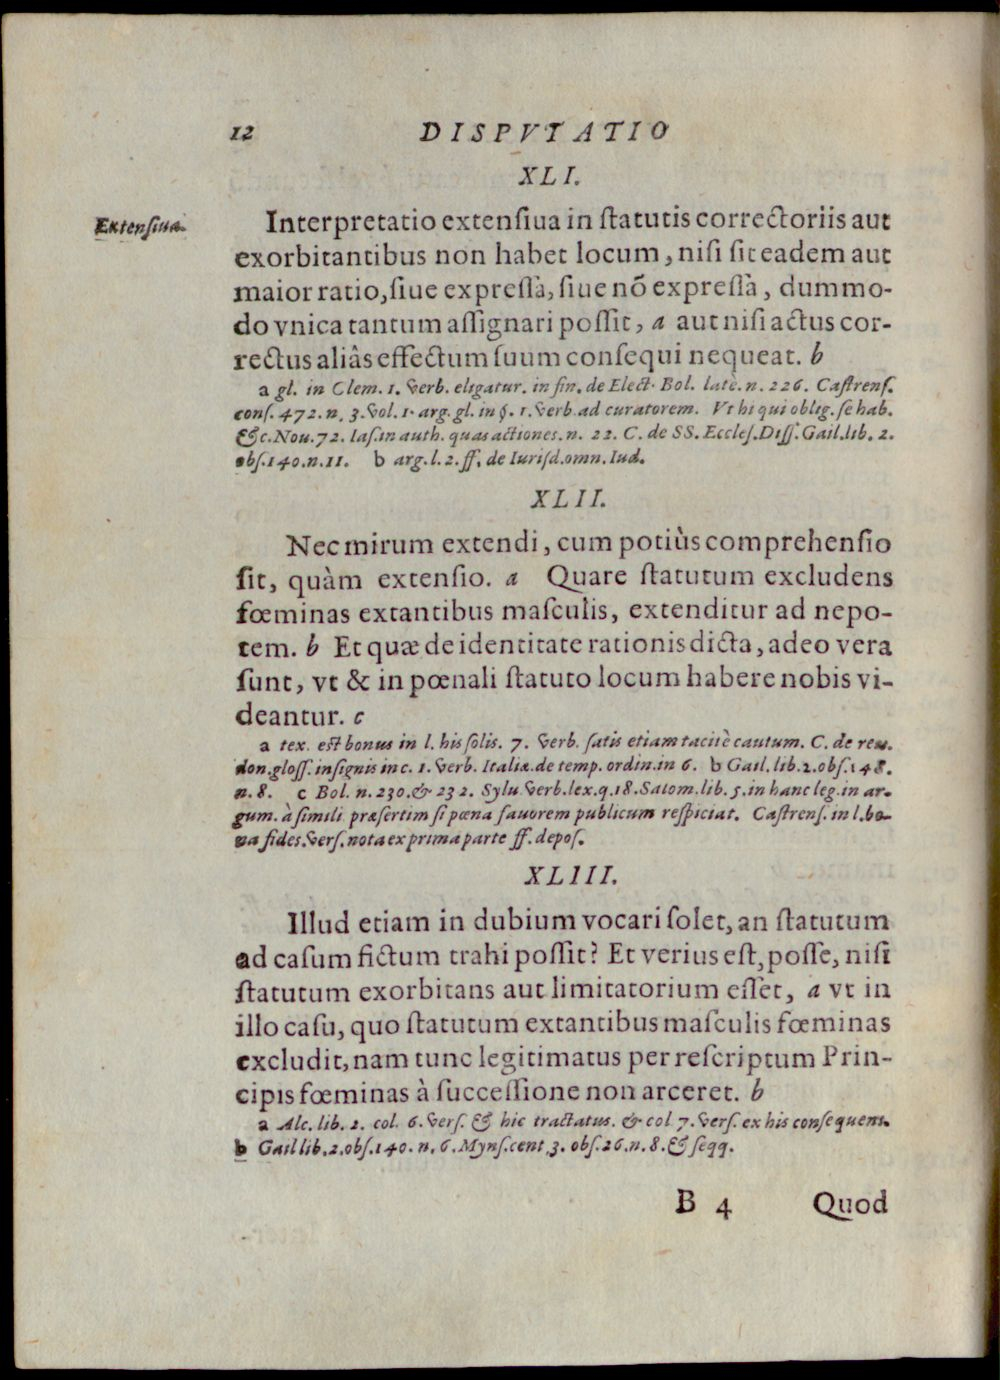 12 DISPVTATIO
XLI.
Extensiua.
Interpretatio extensiua in statutis correctoriis aut
exorbitantibus non habet locum, nisi sit eadem aut
maior ratio, siue expressà, siue nõ expressà, dummo-
do vnica tantum assignari possit, a aut nisi actus cor-
rectus aliâs effectum suum consequi nequeat. b
a gl. in Clem. 1. Verb. eligatur. in fin. de Elect. Bol. latè. n. 226. Castrens.
cons. 472. n. 3. Vol. 1. arg. gl. in §. 1. Verb. ad curatorem. Vt hi qui oblig. se hab.
&c. Nou. 72. Ias. in auth. quas actiones. n. 22. C. de SS. Eccles. Diss. Gail. lib. 2.
obs. 140. n. 11. b arg. l. 2. ff. de Iurisd. omn. Iud.
XLII.
Nec mirum extendi, cum potiùs comprehensio
sit, quàm extensio. a Quare statutum excludens
fœminas extantibus masculis, extenditur ad nepo-
tem. b Et quæ de identitate rationis dicta, adeo vera
sunt, vt & in pœnali statuto locum habere nobis vi-
deantur. c
a tex. est bonus in l. his solis. 7. Verb. satis etiam tacitè cautum. C. de reu.
don. gloss. insignis in c. 1. Verb. Italiæ. de temp. ordin. in 6. b Gail. lib. 2. obs. 148.
n. 8. c Bol. n. 230. & 232. Sylu. Verb. lex. q. 18. Salom. lib. 5. in hanc leg. in ar-
gum. à simili præsertim si pœna fauorem publicum respiciat. Castrens. in l. bo-
na fides. Vers. nota ex prima parte ff. depos.
XLIII.
Illud etiam in dubium vocari solet, an statutum
ad casum fictum trahi possit? Et verius est, posse, nisi
statutum exorbitans aut limitatorium esset, a vt in
illo casu, quo statutum extantibus masculis fœminas
excludit, nam tunc legitimatus per rescriptum Prin-
cipis fœminas à successione non arceret. b
a Alc. lib. 2. col. 6. Vers. & hic tractatus. & col 7. Vers. ex his consequens.
b Gail lib. 2. obs. 140. n. 6. Myns. cent. 3. obs. 26. n. 8. & seqq.
B 4 Quod